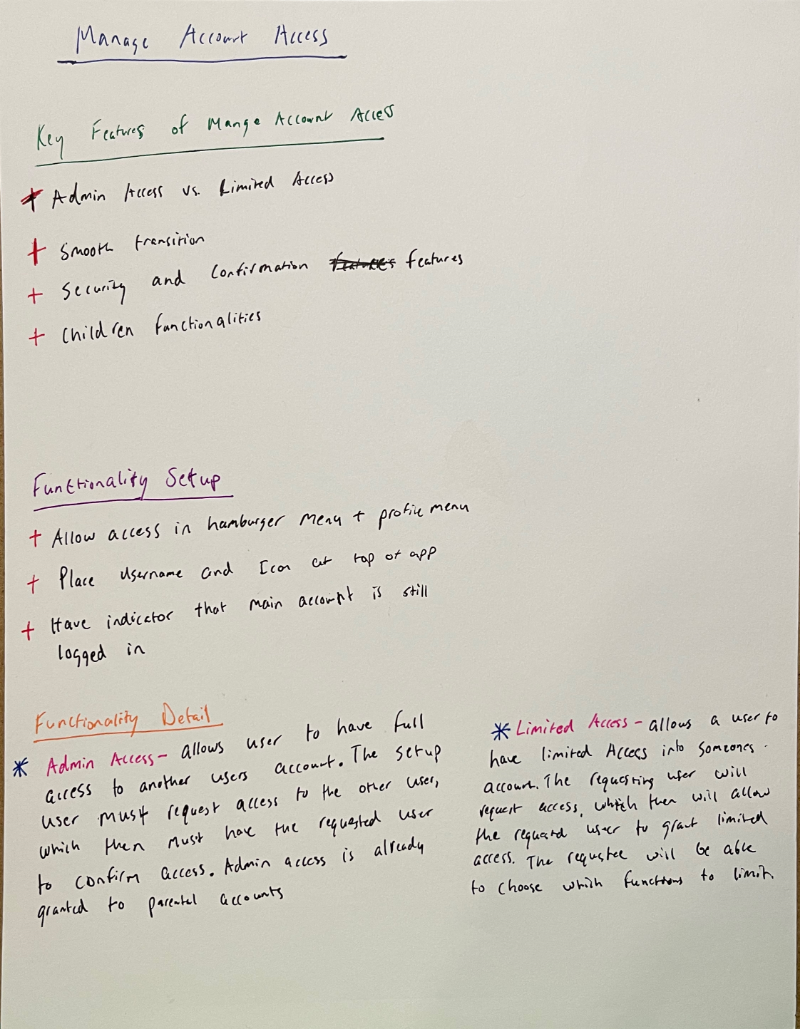 Manage Account Access
Key Features of Mange Account Access
+ Admin Access vs. Limited Access
+ Smooth transition
+ Security and Confirmation features features
+ Children functionalities
Functionality Setup
+ Allow access in hamburger menu + profile menu
+ Place Username and Icon at top of app
+ Have indicator that main account is still
logged in
Functionality Detail
* Admin Access - allows user to have full
access to another users account. The setup
user must request access to the other user,
which then must have the requested user
to confirm access. Admin access is already
granted to parental accounts
* Limited Access - allows a user to
have limited Access into someones
account. The requesting user will
request access, which then will allow
the requested user to grant limited
access. The requestee will be able
to choose which functions to limit.